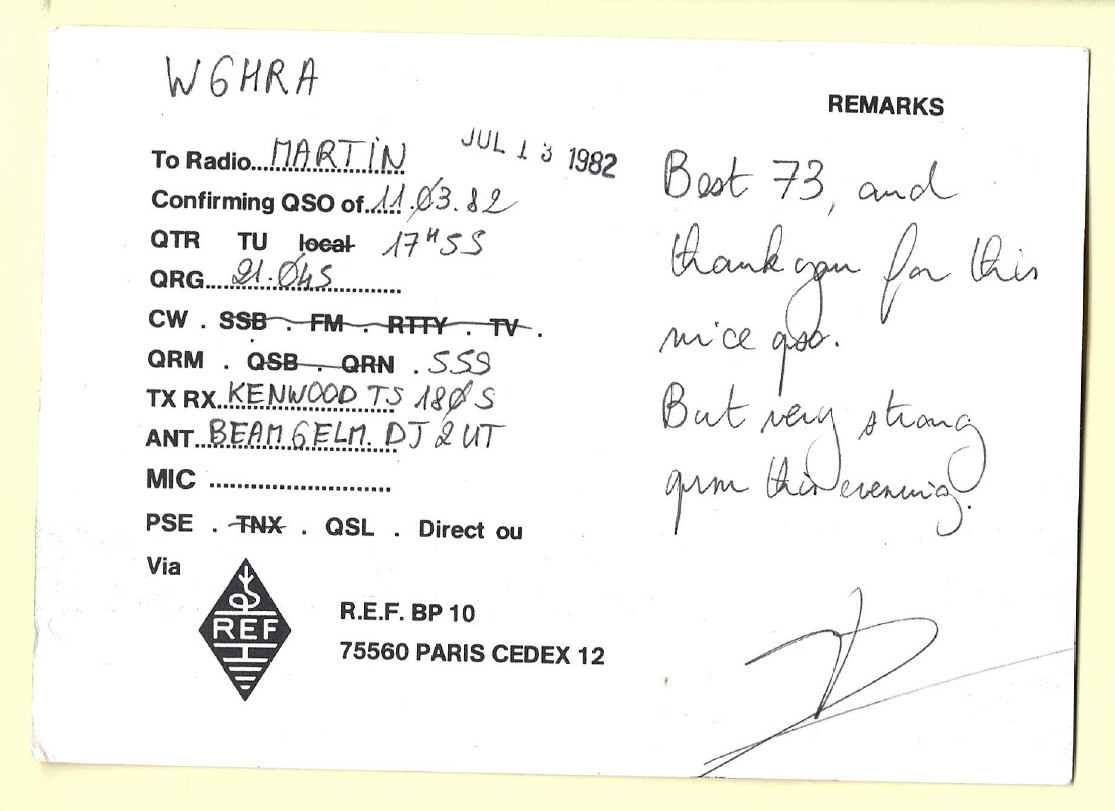 W6HRA
REMARKS
To Radio...MARTIN
JUL 13 1982
Confirming QSO of......11.Ø3.82
QTR TU local 17H55
QRG....21.Ø45....................
CW . SSB . FM . RTTY . TV .
QRM . QSB . QRN . 559
TX RX..KENWOOD TS 18ØS
ANT...BEAM 6ELM. DJ2UT
MIC ..............................
PSE . TNX . QSL . Direct ou
Via
REF
R.E.F. BP 10
75560 PARIS CEDEX 12
Best 73, and
thank you for this
nice qso.
But very strong
qrm this evening.